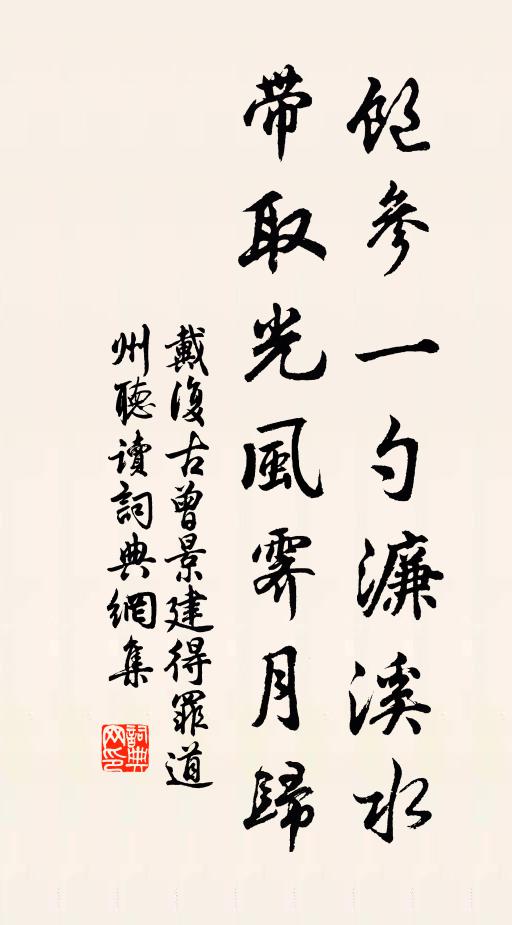 飽參一勺濂溪水
带取光風霽月歸
戴復古曾景建得罪道
州聽讀詞典網集
詞典
网印